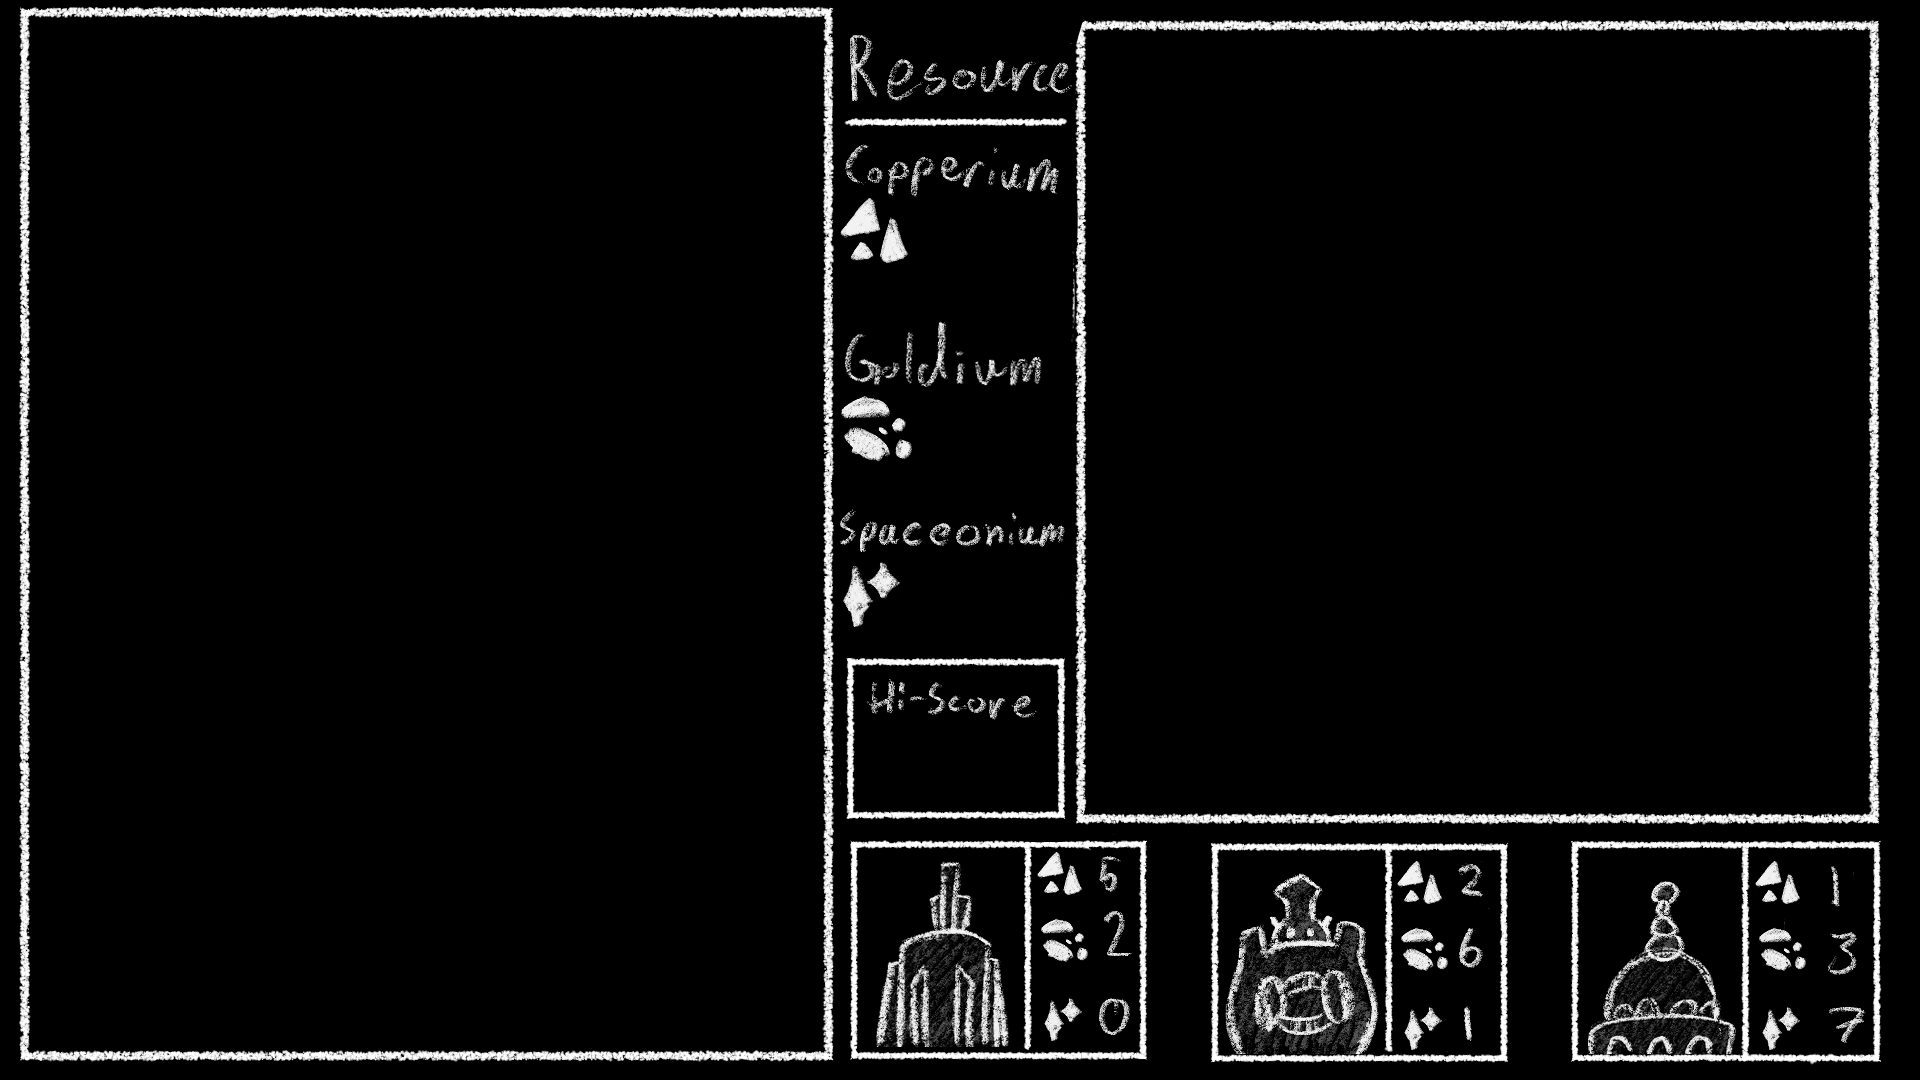 Resource
Copperium
Goldium
Spaceonium
Hi-Score
5
2
0
2
6
1
1
3
7